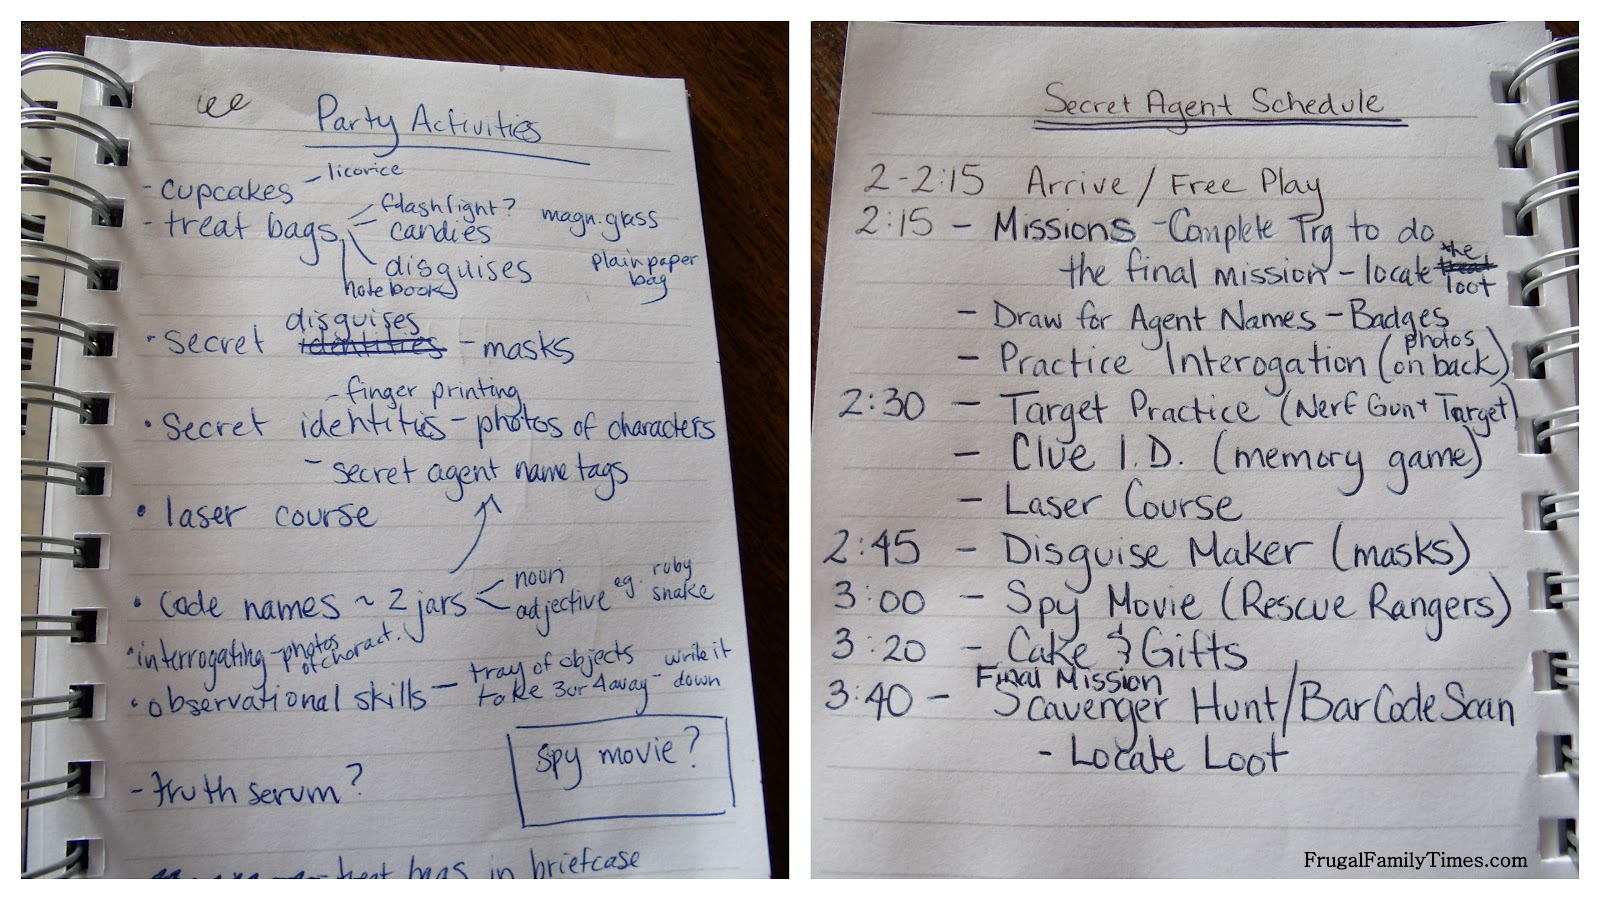 Party Activities
- cupcakes - licorice
- treat bags
flashlight? magn. glass
candies
disguises plain paper
bag
notebook
disguises
• secret identities - masks
- finger printing
• secret identities - photos of characters
- secret agent name tags
• laser course
• code names ~ 2 jars
noun
adjective eg. ruby
snake
• interrogating - photos
of charact.
• observational skills - tray of objects
take 3 or 4 away - write it
down
spy movie?
- truth serum?
treat bags in briefcase
Secret Agent Schedule
2-2:15 Arrive / Free Play
2:15 - Missions - Complete Trg to do
the final mission - locate the
treat loot
- Draw for Agent Names - Badges
- Practice Interogation (photos
on back)
2:30 - Target Practice (Nerf Gun + Target)
- Clue I.D. (memory game)
- Laser Course
2:45 - Disguise Maker (masks)
3:00 - Spy Movie (Rescue Rangers)
3:20 - Cake & Gifts
Final Mission
3:40 - Scavenger Hunt/BarCode Scan
- Locate Loot
FrugalFamilyTimes.com